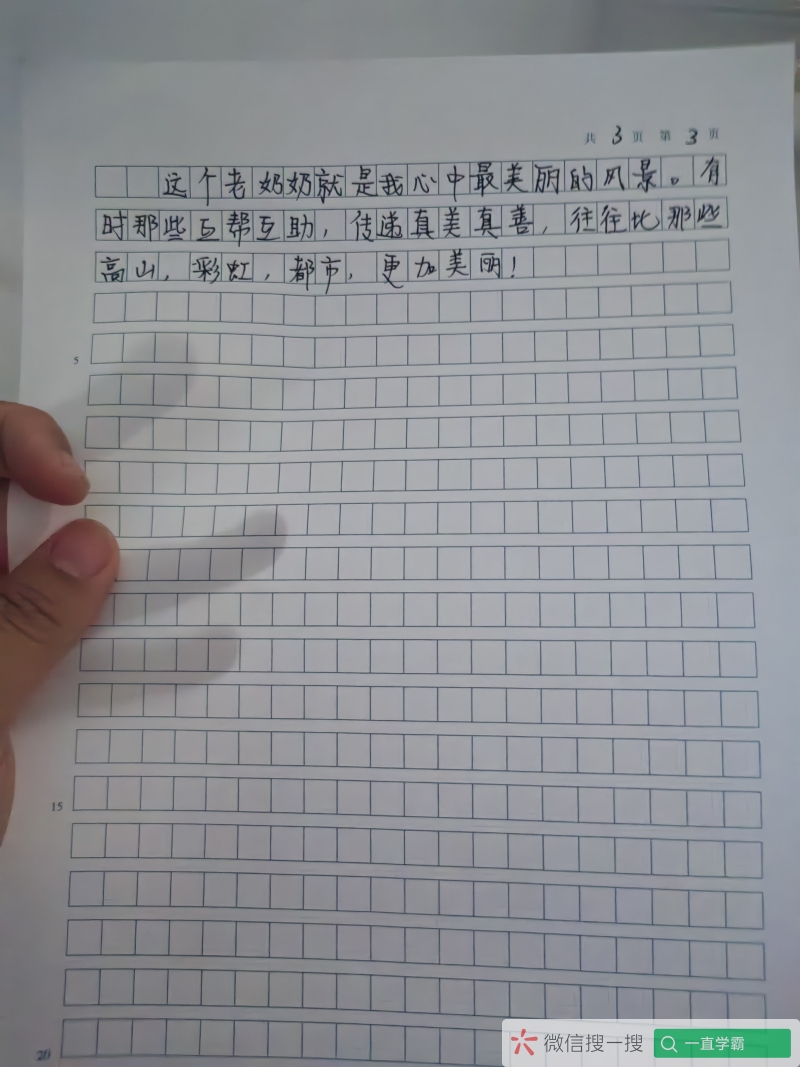 共 3 页 第 3 页
这个老奶奶就是我心中最美丽的风景。有
时那些互帮互助，传递真美真善，往往比那些
高山，彩虹，都市，更加美丽！
5
15
20
微信搜一搜 一直学霸